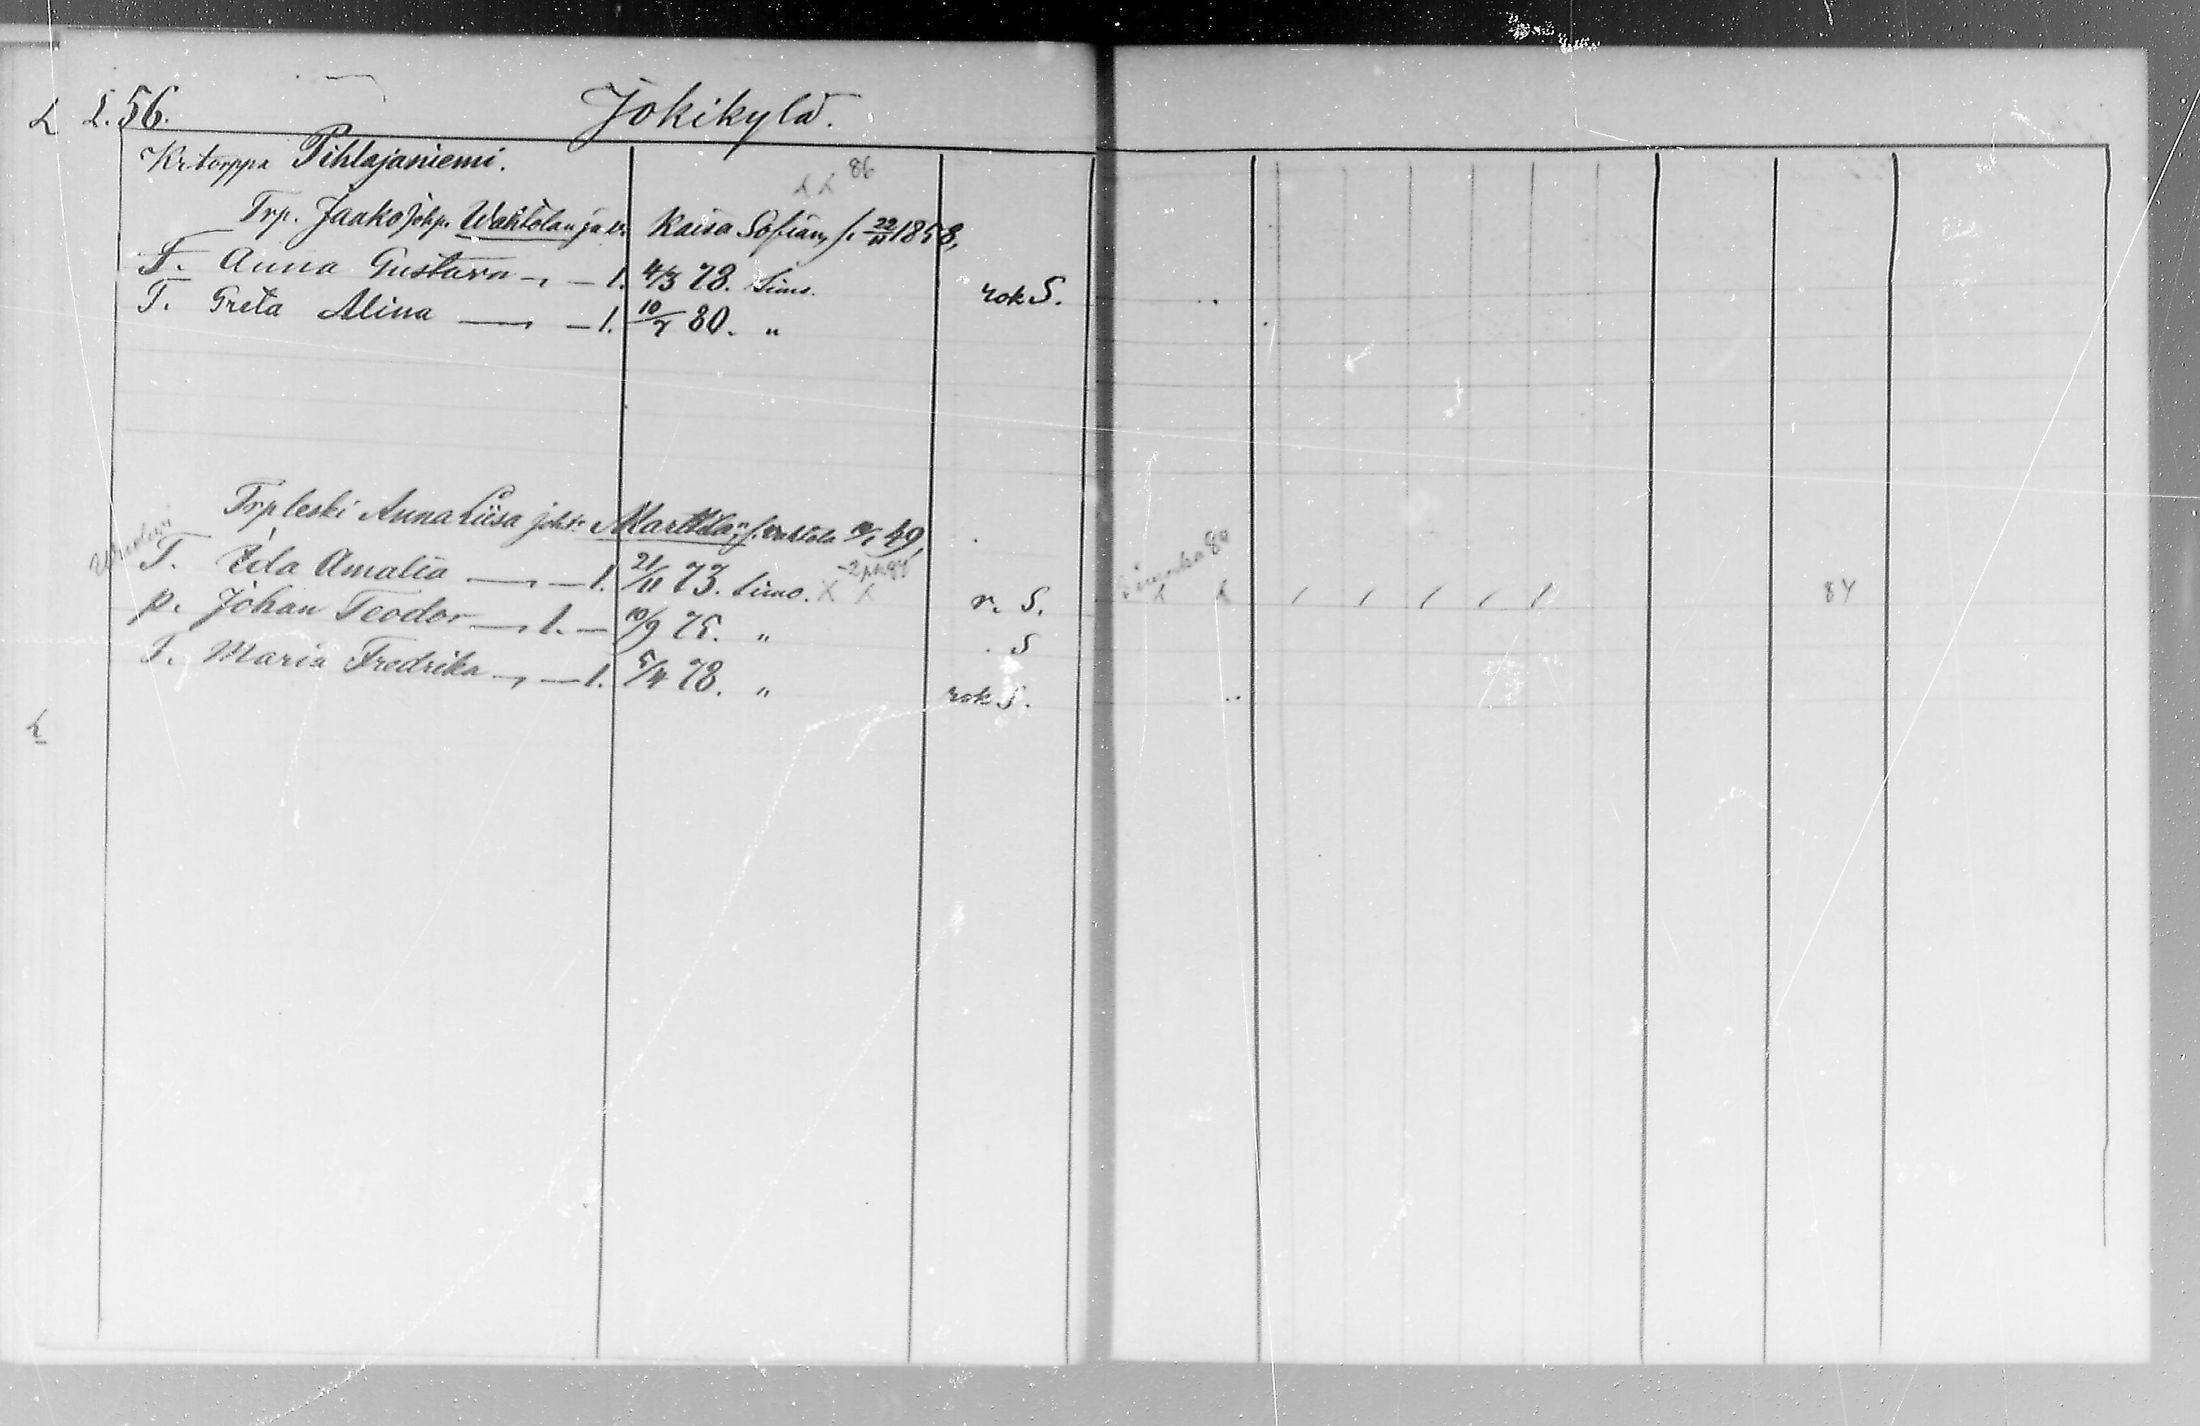 L L.56. Jokikylä.
Kr.torppa Pihlajaniemi.
L L 86
Trp. Jaako Johp. Wahtolan ja v. Kaisa Sofian, s. 22/11 1858,
T. Anna Gustava — l. 4/3 78. Simo. rok S.
T. Greta Alina — l. 10/7 80. "
Trp leski Anna Liisa joht. Marttila, s. 49,
T. Ida Amalia — l. 21/11 73. Simo. X X r. S. 84
p. Johan Teodor — l. — 10/9 75. " . S
T. Maria Fredrika — l. 5/4 78. " rok S.
L